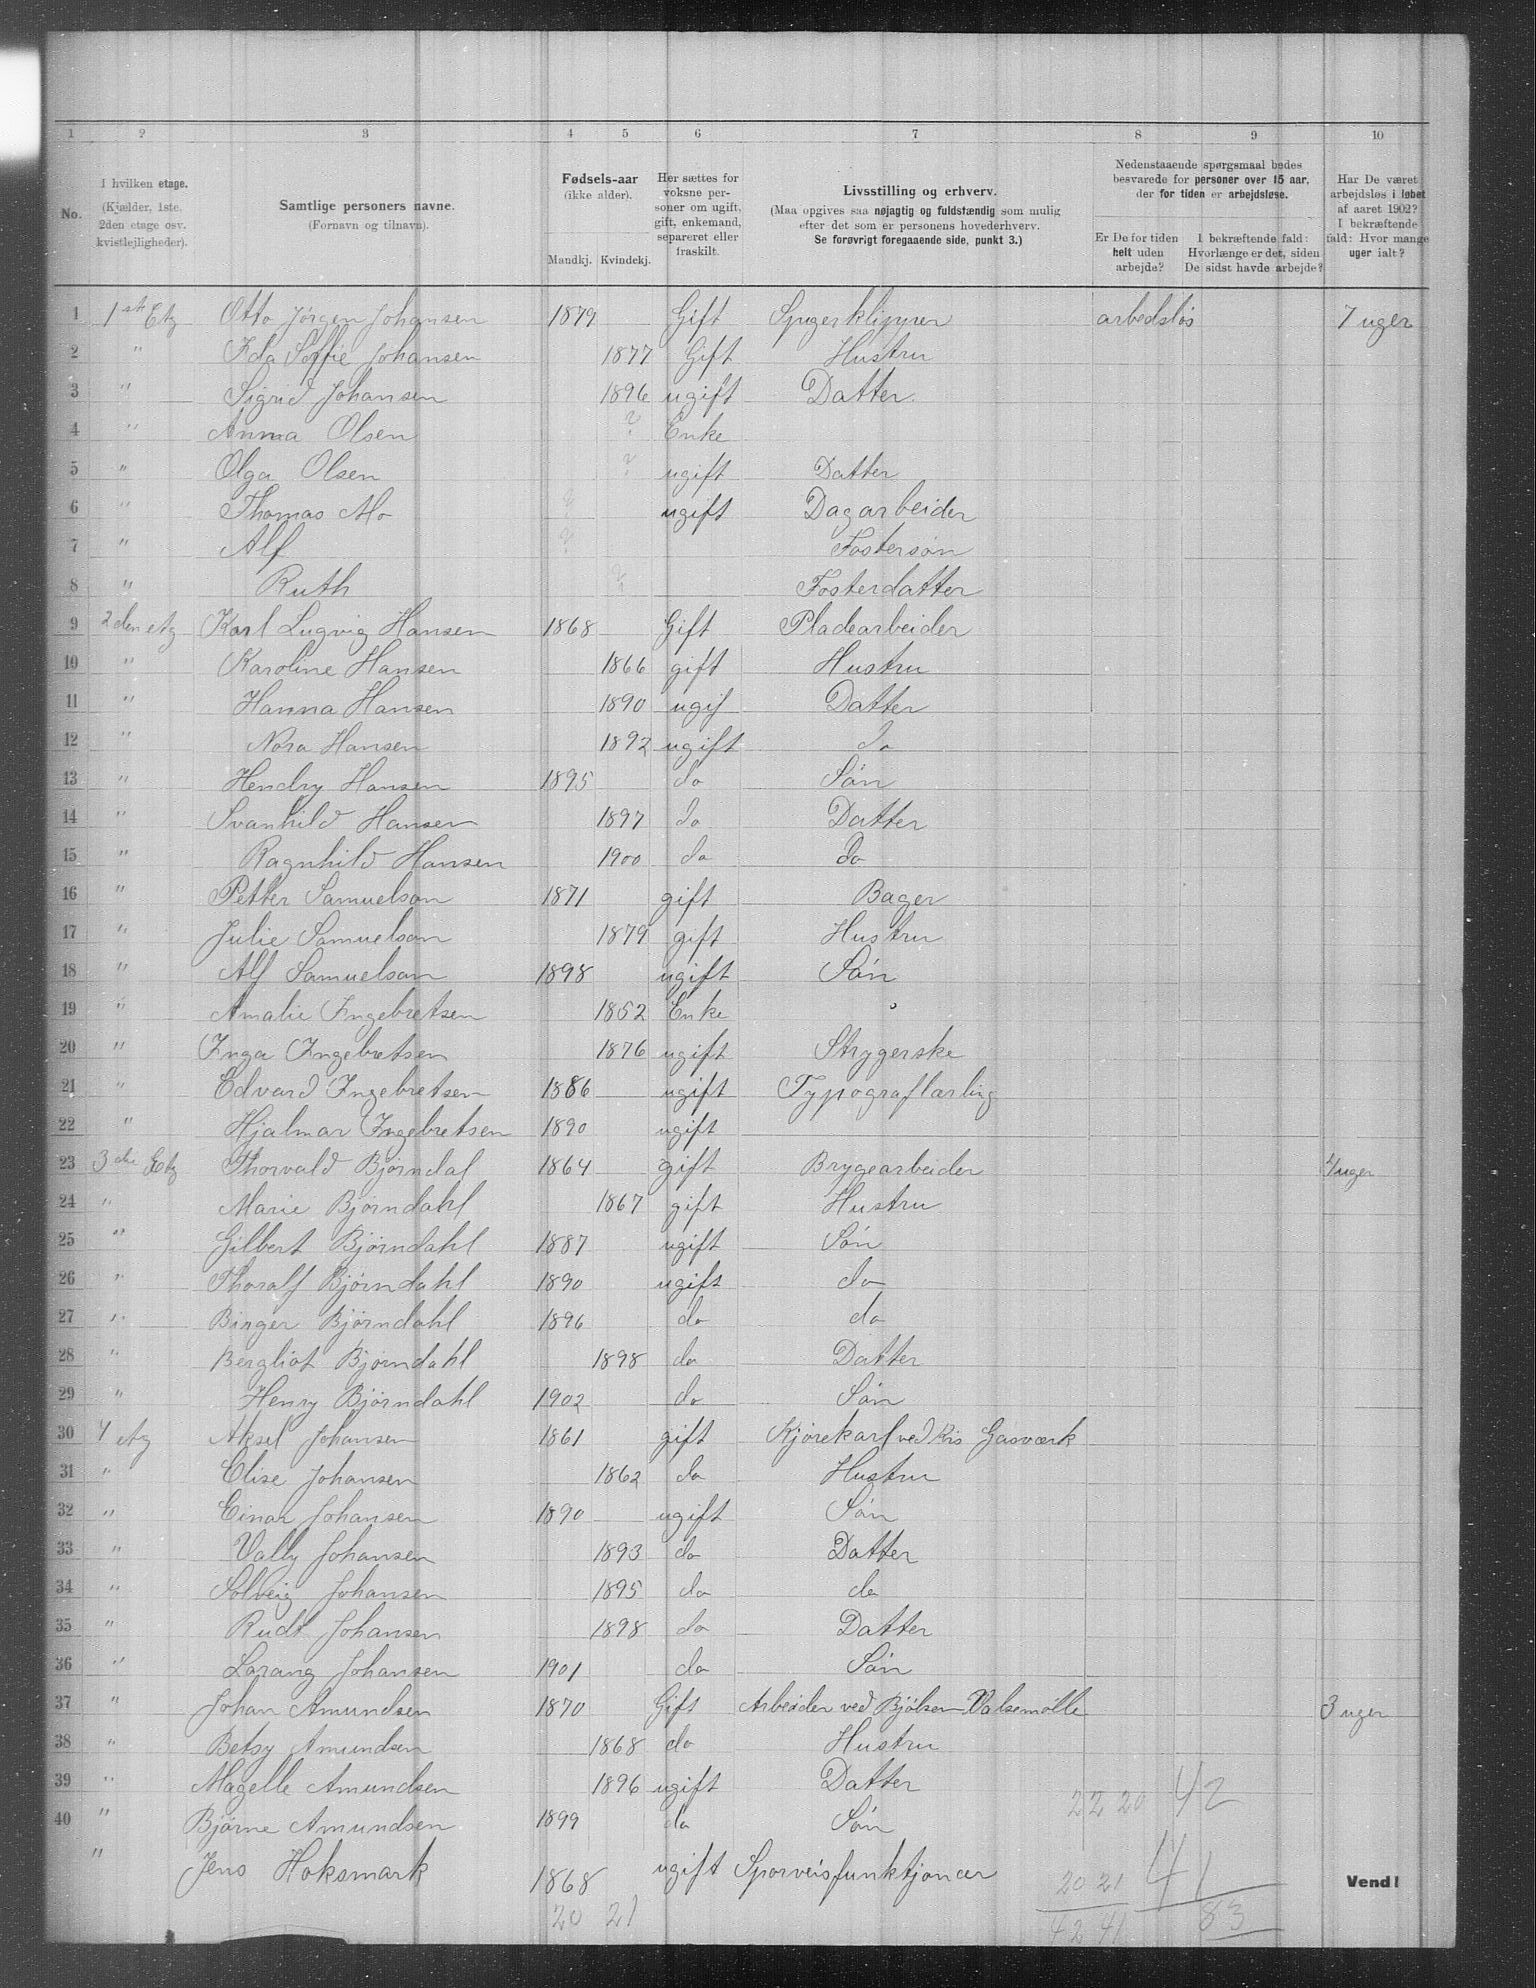 1 2 3 4 5 6 7 8 9 10
No.
I hvilken etage.
(Kjælder, 1ste, 2den etage osv. kvistlejligheder).
Samtlige personers navne.
(Fornavn og tilnavn).
Fødsels-aar
(ikke alder).
Mandkj. Kvindekj.
Her sættes for voksne personer om ugift, gift, enkemand, separeret eller fraskilt.
Livsstilling og erhverv.
(Maa opgives saa nøjagtig og fuldstændig som mulig efter det som er personens hovederhverv.
Se forøvrigt foregaaende side, punkt 3.)
Nedenstaaende spørgsmaal bedes besvarede for personer over 15 aar, der for tiden er arbejdsløse.
Er De for tiden helt uden arbejde?
I bekræftende fald: Hvorlænge er det, siden De sidst havde arbejde?
Har De været arbejdsløs i løbet af aaret 1902? I bekræftende fald: Hvor mange uger ialt?
1 1ste Etg Otto Jørgen Johansen 1879 Gift arbedsløs 7 uger
2 " Ida Soffie Johansen 1877 Gift Hustru
3 " Sigrid Johansen 1896 ugift Datter.
4 " Anna Olsen ? Enke
5 " Olga Olsen ? ugift Datter
6 " Thomas Mo ? ugift Dagarbeider
7 " Alf ? Fostersøn
8 " Ruth ? Fosterdatter
9 2den etg Karl Lugvig Hansen 1868 Gift Pladearbeider
10 " Karoline Hansen 1866 gift Hustru
11 " Hanna Hansen 1890 ugif Datter
12 " Nora Hansen 1892 ugift do
13 " Hendry Hansen 1895 do Søn
14 " Svanhild Hansen 1897 do Datter
15 " Ragnhild Hansen 1900 do do
16 " Petter Samuelson 1871 gift Bager
17 " Julie Samuelson 1879 gift Hustru
18 " Alf Samuelson 1898 ugift Søn
19 " Amalie Ingebretsen 1852 Enke
20 " Inga Ingebretsen 1876 ugift Strygerske
21 " Edvard Ingebretsen 1886 ugift Typograflærling
22 " Hjalmar Ingebretsen 1890 ugift
23 3die Etg Thorvald Bjørndal 1864 gift Brygearbeider uger
24 " Marie Bjørndahl 1867 gift Hustru
25 " Gilbert Bjørndahl 1887 ugift Søn
26 " Thoralf Bjørndahl 1890 ugift do
27 " Birger Bjørndahl 1896 do do
28 " Bergliot Bjørndahl 1898 do Datter
29 " Henry Bjørndahl 1902 do Søn
30 4 etg Aksel Johansen 1861 gift Kjørekarl ved Kris Gasværk
31 " Elise Johansen 1862 do Hustru
32 " Einar Johansen 1890 ugift Søn
33 " Vally Johansen 1893 do Datter
34 " Solveig Johansen 1895 do do
35 " Rudt Johansen 1898 do Datter
36 " Larang Johansen 1901 do Søn
37 " Johan Amundsen 1870 Gift Arbeider ved Bjølsen Valsemølle 3 uger
38 " Betsy Amundsen 1868 do Hustru
39 " Magelle Amundsen 1896 ugift Datter
40 " Bjørne Amundsen 1899 do Søn
22 20 42
" Jens Hoksmark 1868 ugift Sporveisfunktjonær
20 21 41
Vend!
20 21
42 41 83